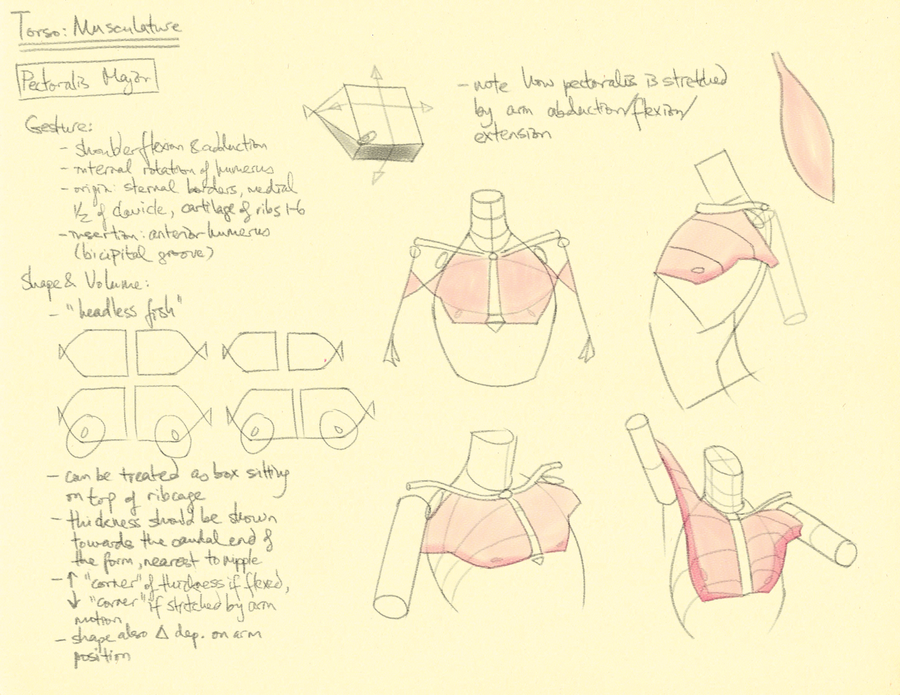 Torso: Musculature
Pectoralis Major
Gesture:
- shoulder flexion & adduction
- internal rotation of humerus
- origin: sternal borders, medial
1/2 of clavicle, cartilage of ribs 1-6
- insertion: anterior humerus
(bicipital groove)
Shape & Volume:
- "headless fish"
- can be treated as box sitting
on top of ribcage
- thickness should be shown
towards the caudal end of
the form, nearest to nipple
- ↑ "corner" of thickness if flexed,
↓ "corner" if stretched by arm
motion
- shape also Δ dep. on arm
position
- note how pectoralis is stretched
by arm abduction/flexion/
extension